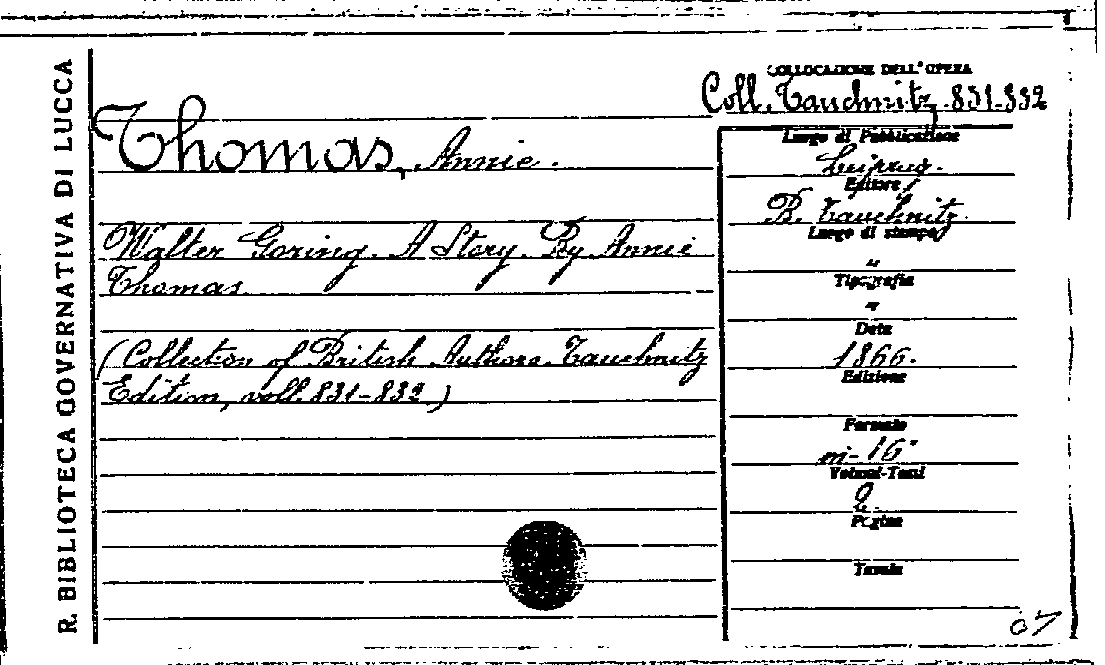 R. BIBLIOTECA GOVERNATIVA DI LUCCA
COLLOCAZIONE DELL'OPERA
Coll. Tauchnitz 831-832
Thomas, Annie.
Walter Goring. A Story. By Annie
Thomas.
(Collection of British Authors. Tauchnitz
Edition, voll. 831-832.)
Luogo di Pubblicazione
Leipzig.
Editore
B. Tauchnitz.
Luogo di stampa
"
Tipografia
"
Data
1866.
Edizione
Formato
in-16°
Volumi-Tomi
2.
Pagine
Tavole
07